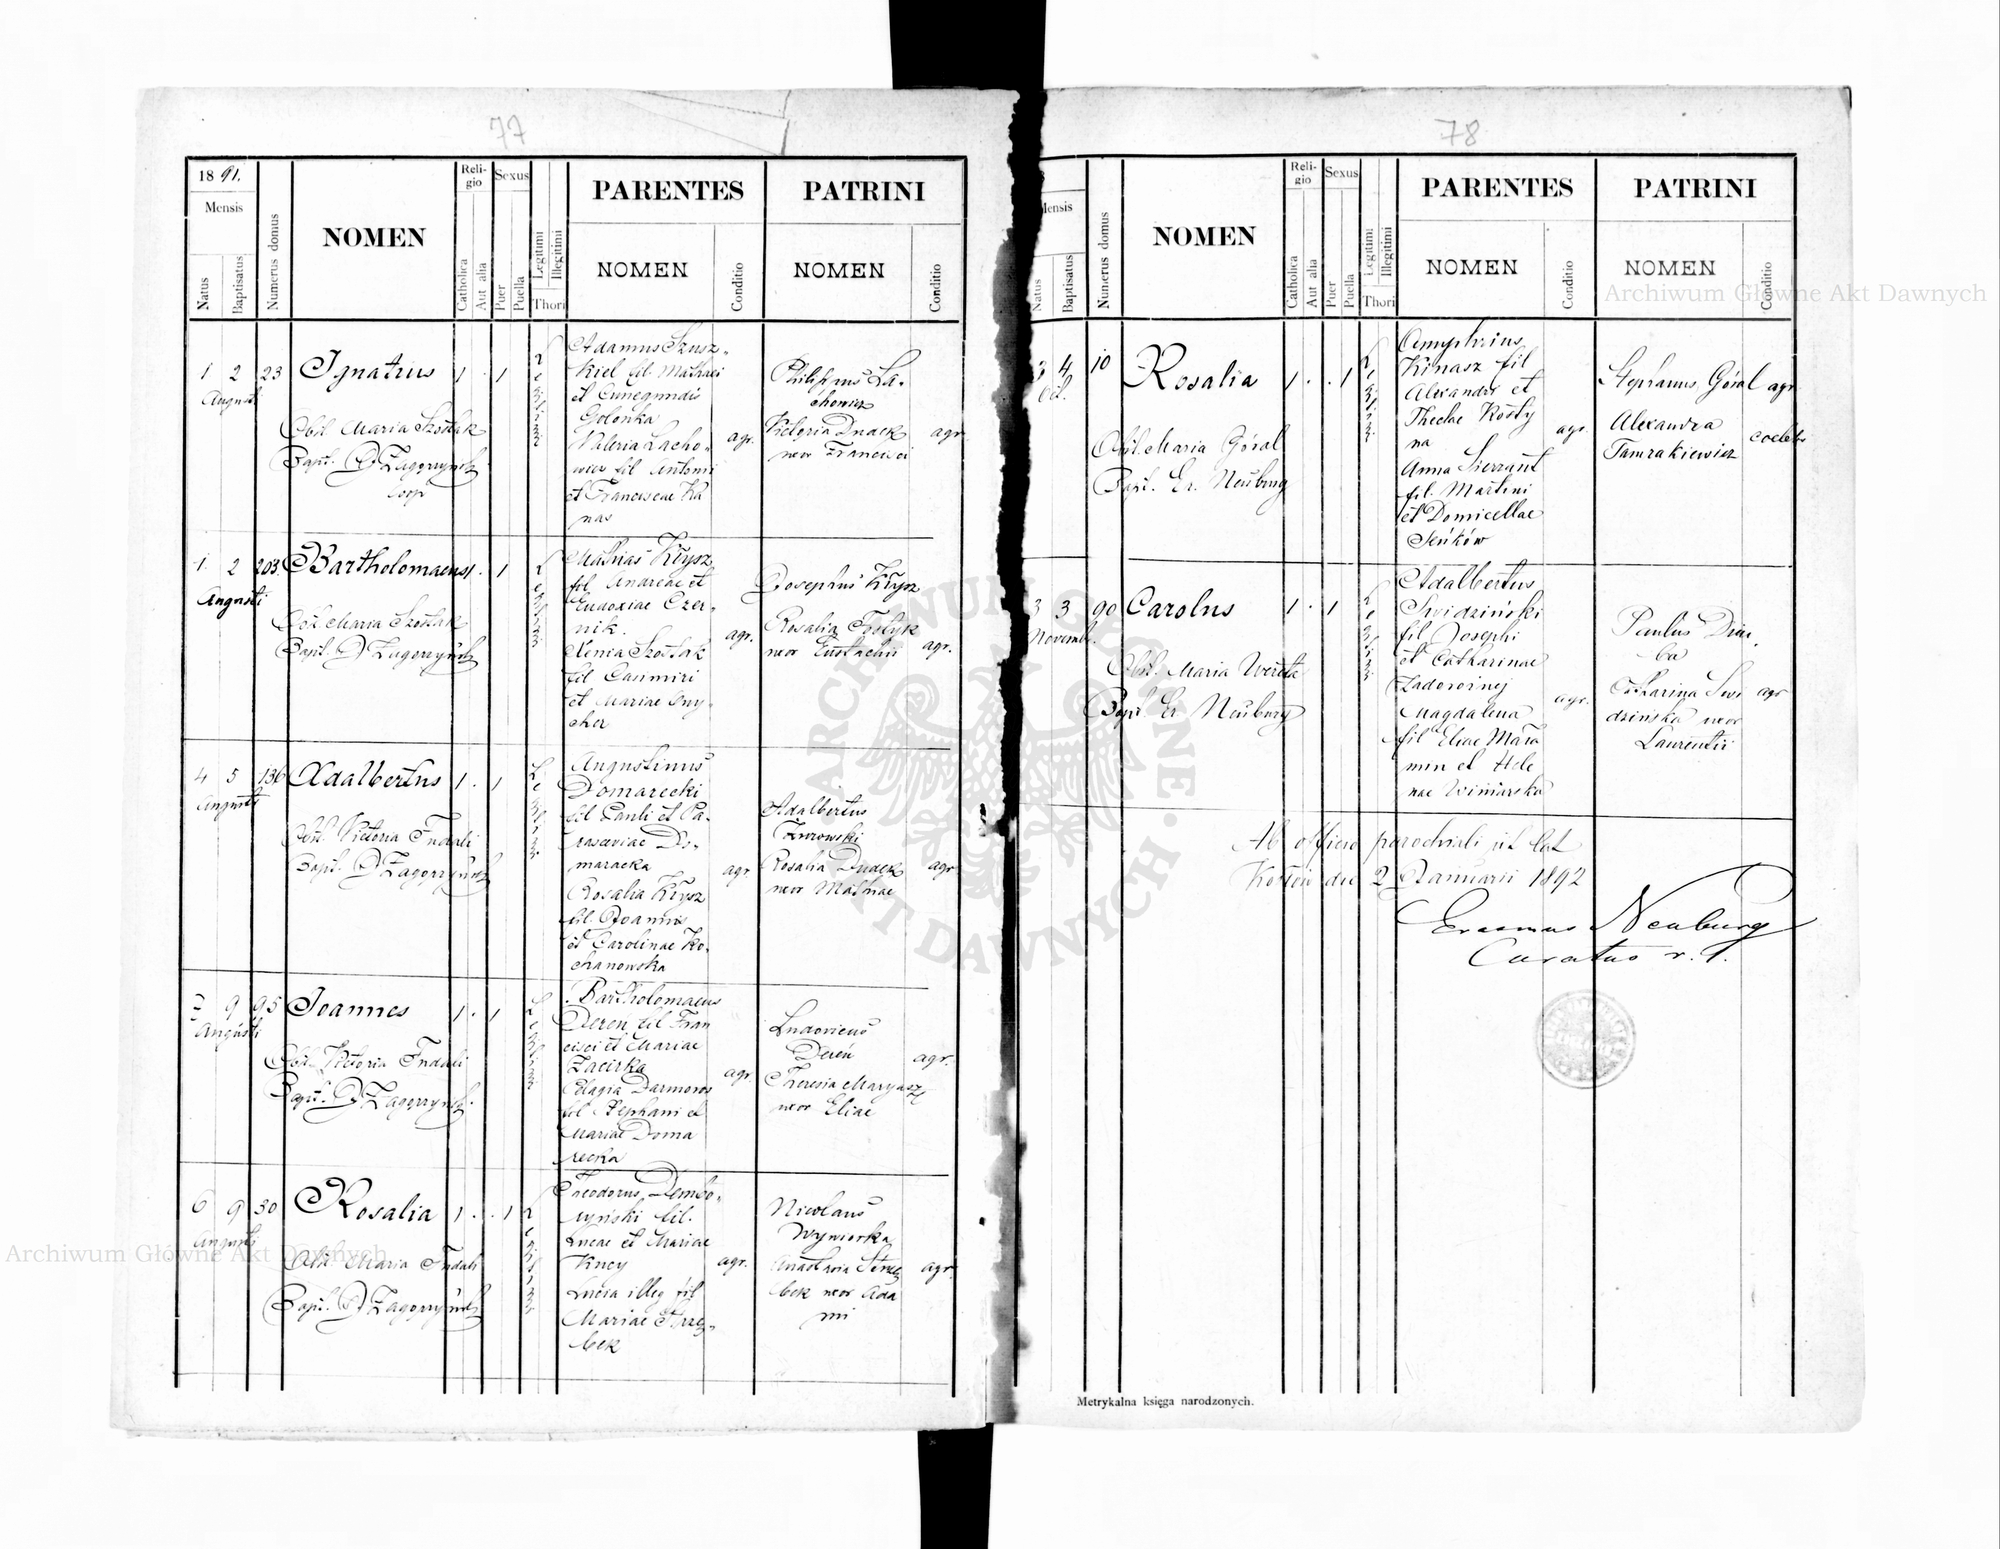 77
1891.
Mensis
Natus
Baptisatus
Numerus domus
NOMEN
Religio
Catholica
Aut alia
Sexus
Puer
Puella
Legitimi
Illegitimi
Thori
PARENTES
NOMEN
Conditio
PATRINI
NOMEN
Conditio
1 2 23 Ignatius 1 . 1
Augusti
Obst. Maria Szostak
Bapt. Zagorzyński
coop
Adamus Szusz-
kiel fil. Mathaei
et Cunegundis
Golonka
Valeria Lacho-
wicz fil Antonii
et Franciscae Ka
nas
agr.
Philippus La-
chowicz
Victoria Dudek
uxor Francisci
agr
1 2 203 Bartholomaeus 1 . 1
Augusti
Obst. Maria Szostak
Bapt. Zagorzyński
Mathias Krysz
fil Andreae et
Eudoxiae Czer-
nik.
Xenia Szostak
fil Casimiri
et Mariae
cher
agr.
Josephus Krysz
Rosalia
uxor Eustachii
agr.
4 5 136 Adalbertus 1 . 1
Augusti
Obst. Victoria Fudali
Bapt. Zagorzyński
Augustinus
Domarecki
fil Pauli et Pa-
rasceviae Do-
maracka
Rosalia Krysz
fil. Joannis
et Carolinae Ko-
chanowska
agr
Adalbertus
Żurowski
Rosalia Dudek
uxor Mathiae
agr
7 9 95 Joannes 1 . 1
Augusti
Obst. Victoria Fudali
Bapt. Zagorzyński
Bartholomaeus
Deren fil Fran
cisci et Mariae
Zacirka
Pelagia Darmoros
fil Stephani et
Mariae Doma
recka
agr.
Ludovicus
Dereń
Theresia Maryasz
uxor Eliae
agr.
6 9 30 Rosalia 1 . . 1
Augusti
Obst. Maria Fudali
Bapt. Zagorzyński
Theodorus Dembo-
wyński fil.
Lucae et Mariae
Kucy
Lucia illeg fil
Mariae Strzę-
bek
agr.
Nicolaus
Wywiorka
Anastasia Strzę
bek uxor Ada
mi
agr
78
Mensis
Natus
Baptisatus
Numerus domus
NOMEN
Religio
Catholica
Aut alia
Sexus
Puer
Puella
Legitimi
Illegitimi
Thori
PARENTES
NOMEN
Conditio
PATRINI
NOMEN
Conditio
3 4 10 Rosalia 1 . . 1
Oct.
Obst. Maria Góral
Bapt. Er. Neuburg
Omphrius
Kinasz fil
Alexandri et
Theclae Kosty
na
Anna Sierżant
fil. Martini
et Domicellae
Seńków
agr.
Stephanus Góral agr
Alexandra
Tamrakiewicz coelebs
3 3 90 Carolus 1 . 1
Novemb.
Obst. Maria Wereta
Bapt. Er Neuburg
Adalbertus
Swidziński
fil Josephi
et Catharinae
Zadoroinej
Magdalena
fil Eliae Mara
min et Hele
nae Winiarska
agr.
Paulus Dziu
ba
Catharina Swi
dzińska uxor
Laurentii
agr
Ab officio parochiali rit lat
Kołtów die 2 Januarii 1892
Erasmus Neuburg
Curatus r. l.
Metrykalna księga narodzonych.
Archiwum Główne Akt Dawnych
Archiwum Główne Akt Dawnych
ARCHIWUM GŁÓWNE AKT DAWNYCH